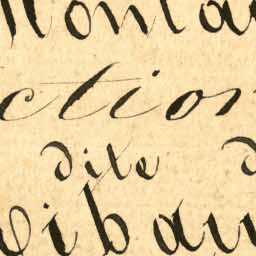 Monta
ction
dite d
iban